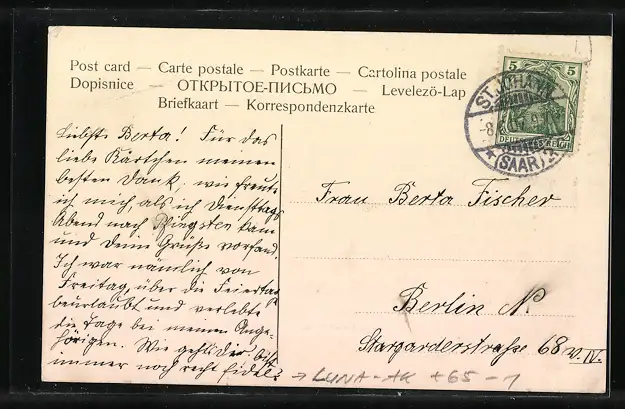 Post card — Carte postale — Postkarte — Cartolina postale
Dopisnice — ОТКРЫТОЕ-ПИСЬМО — Levelezö-Lap
Briefkaart — Korrespondenzkarte
5 5
DEUTSCHES REICH
ST. JOHANN
(SAAR)
Liebste Berta! Für das
liebe Kärtchen meinen
besten Dank, wie freute
ich mich, als ich Dienstag
Abend nach Pfingsten kam
und deine Grüße vorfand.
Ich war nämlich von
Freitag, über die Feiertag
beurlaubt und verlebte
die Tage bei meinen Ange-
hörigen. Wie geht's dir, bist
immer noch recht fidel?
Frau Berta Fischer
Berlin N.
Stargarderstraße 68 v. IV.
LUNA-AK +65 -1